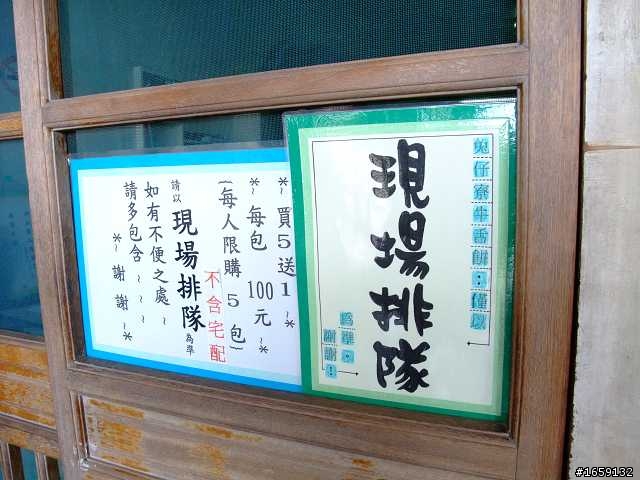 兔仔寮牛舌餅：僅以
現場排隊
為準。
謝謝！
*~買5送1~*
*~每包100元~*
(每人限購5包)
不含宅配
請以現場排隊為準
如有不便之處~
請多包含~~~
*~謝謝~*
#1659132